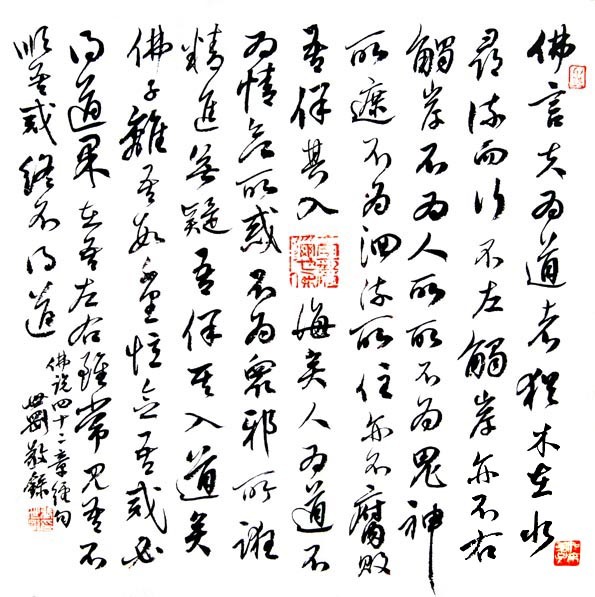 佛言夫为道者猶木在水
尋流而行不左觸岸亦不右
觸岸不为人所所不为鬼神
所遮不为洄流所住亦不腐敗
吾保其入海矣人为道不
为情欲所惑不为眾邪所誑
精進無疑吾保其入道矣
佛子離吾數千里憶念吾戒必
得道果在吾左右雖常見吾不
順吾戒終不得道
佛说四十二章經句
敬錄